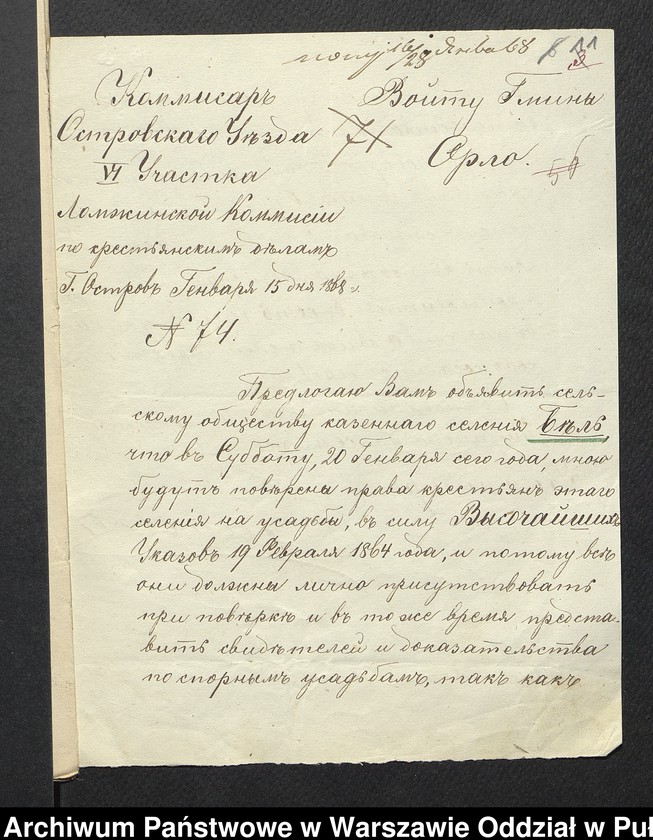 полу 16/28 Янва 68 11
Коммисаръ
Островскаго Уѣзда
VI Участка
Ломжинской Коммисіи
по крестьянскимъ дѣламъ
Г. Островъ Генваря 15 дня 1868 г.
N 74.
Войту Гмины
Орло.
71
56
Предлогаю Вамъ объявить сель-
скому обществу казеннаго селенія Бѣль
что въ Субботу, 20 Генваря сего года, мною
будутъ повѣрены права крестьянъ этаго
селенія на усадьбы, въ силу Высочайшихъ
Указовъ 19 Февраля 1864 года, и потому всѣ
они должны лично присутствовать
при повѣркѣ и въ то же время предста-
вить свидѣтелей и доказательства
по спорнымъ усадьбамъ, такъ какъ
Archiwum Państwowe w Warszawie Oddział w Puł